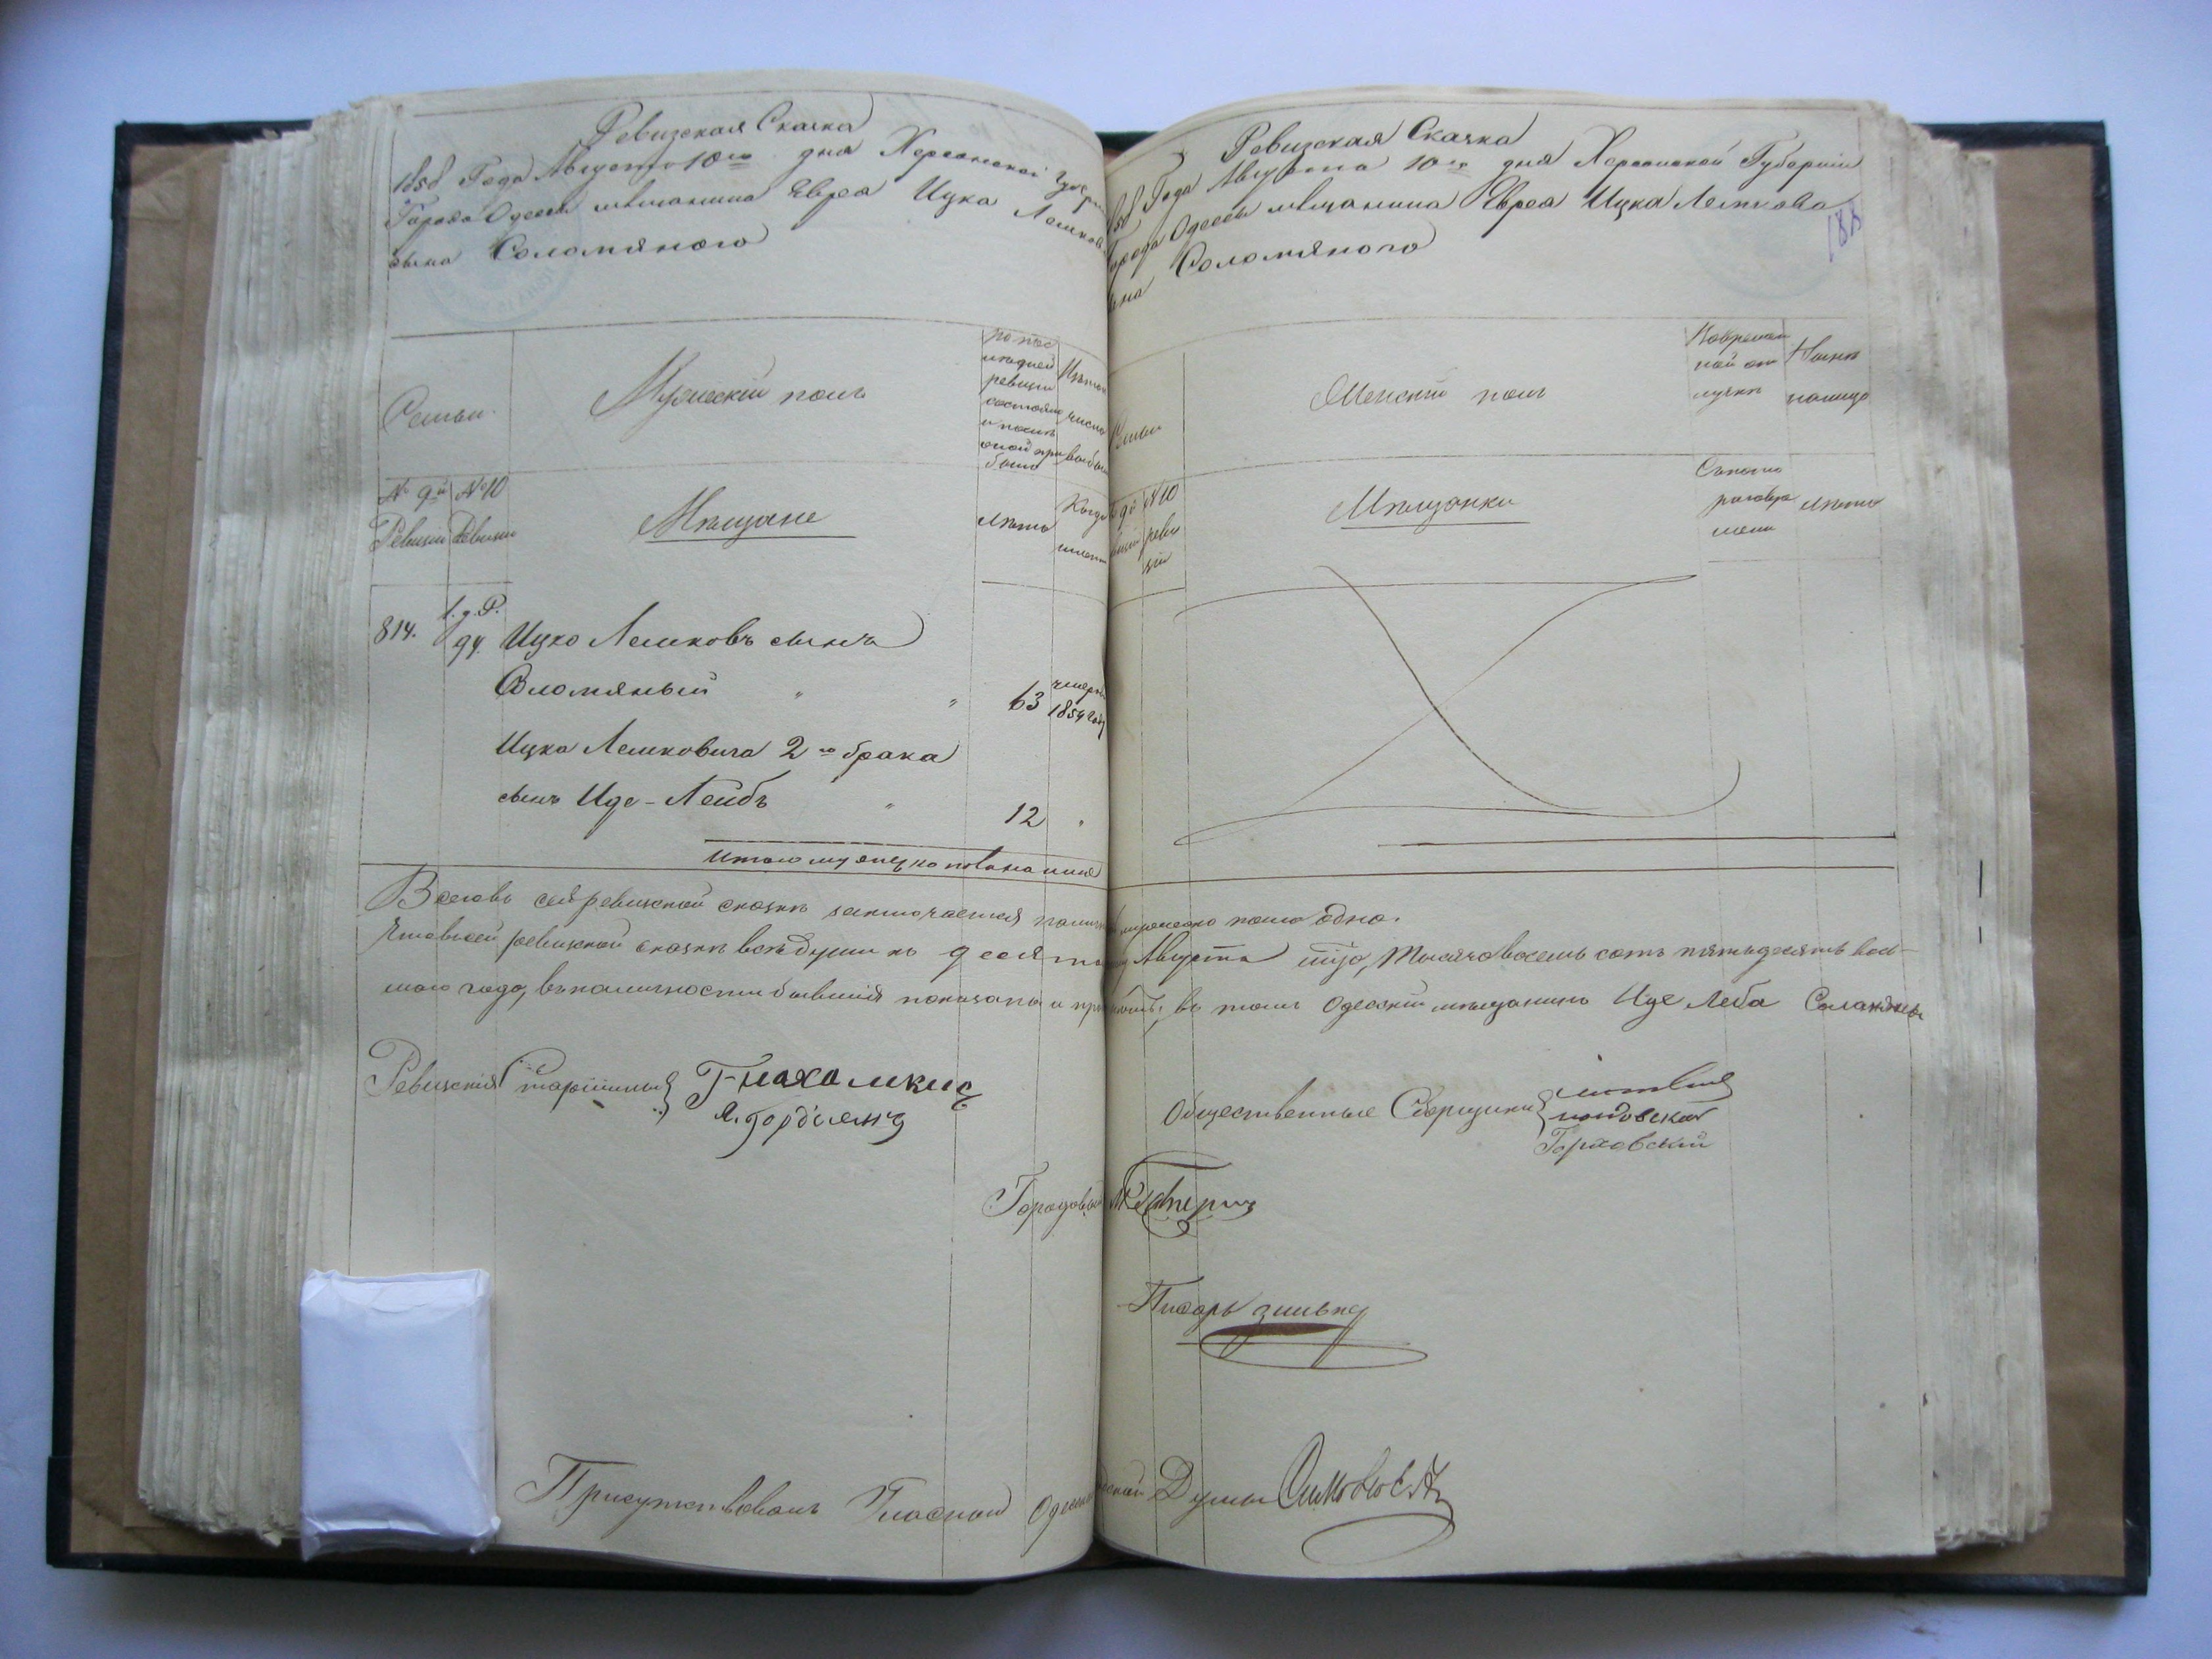 Ревизская Сказка
1858 Года Августа 10го дня Херсонской Губерни
Города Одессы мещанина Еврея Ицка Лешков
сына Соломяного
Семьи.
Мужеский полъ
по пос
ледней
ревизіи
состояло
и послѣ
оной при
было
Изъ того
числа
выбыло
№ 9й Ревизіи
№ 10 Ревизіи
Мѣщане
лѣта
Когда
именно
814.
1.д.Р.
94.
Ицко Лешковъ сынъ
Соломяный " " 63 умеръ 1854 году
Ицка Лешковича 2го брака
сынъ Иде-Лейбъ " 12 "
Итого мужеска пола на лице
Ревизская Сказка
1858 Года Августа 10го дня Херсонской Губерніи
Города Одессы мѣщанина Еврея Ицка Лешкова
сына Соломяного
188
Семьи
Женскій полъ
Во времен
ной от
лучкѣ
Нынѣ
на лицо
9й
№ 10
реви
зіи
Мѣщанки
Съ кого
времени
лѣта
Всего въ сей ревизской сказкѣ заключается налицо мужеска пола одна.
Что въ сей ревизской сказкѣ всѣ души къ десятому Августа сего, тысяча восемь сотъ пятьдесятъ вось-
маго года, въ наличности бывшія показаны и въ томъ Одесскій мѣщанинъ Иде Леба
Ревизскія Старшины
Общественные Сборщики
Городовый
Писарь
Присутствовалъ Гласной Одесской Думы